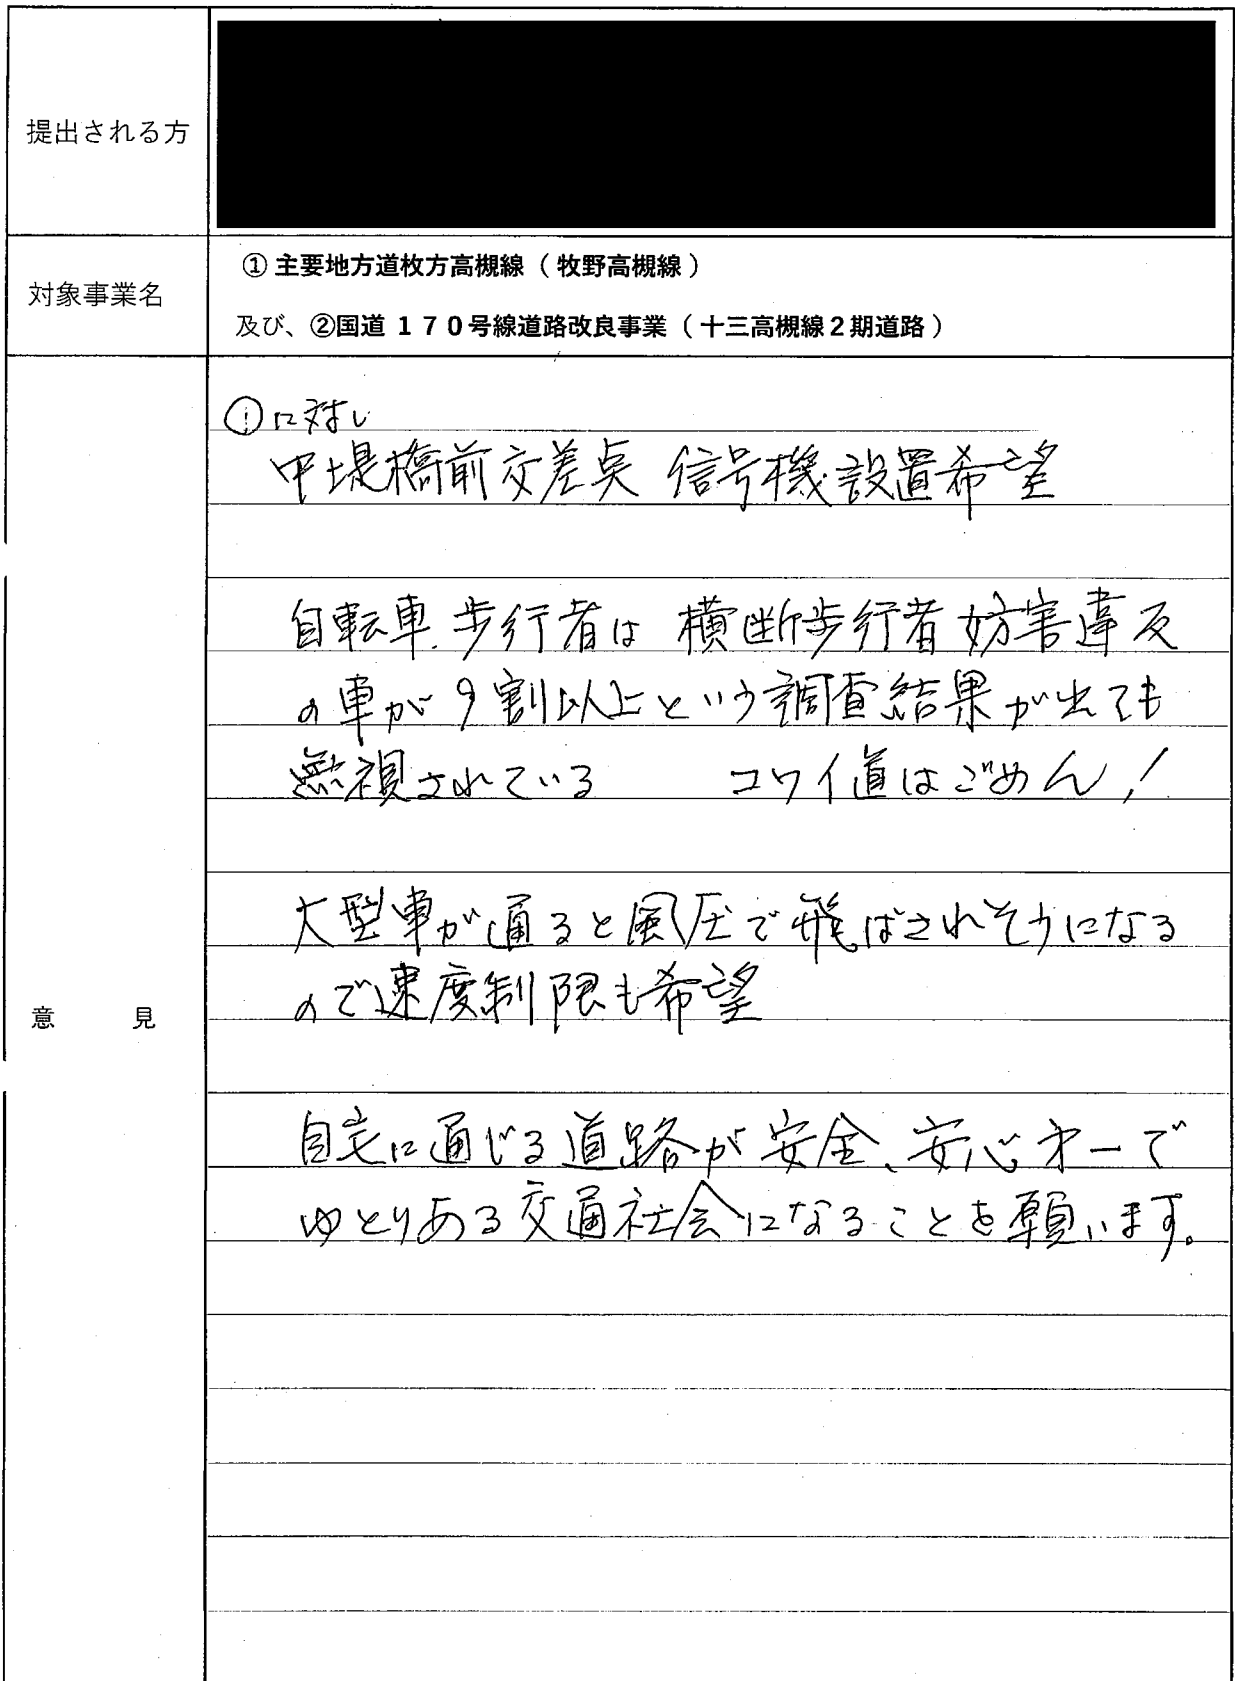 提出される方
対象事業名
① 主要地方道枚方高槻線（牧野高槻線）
及び、②国道 １７０号線道路改良事業（十三高槻線２期道路）
意　見
①に対し
中堤橋前交差点 信号機設置希望
自転車.歩行者は 横断歩行者妨害違反
の車が9割以上という調査結果が出ても
無視されている　コワイ道はごめん！
大型車が通ると風圧で飛ばされそうになる
ので速度制限も希望
自宅に通じる道路が安全、安心才一で
ゆとりある交通社会になることを願います。